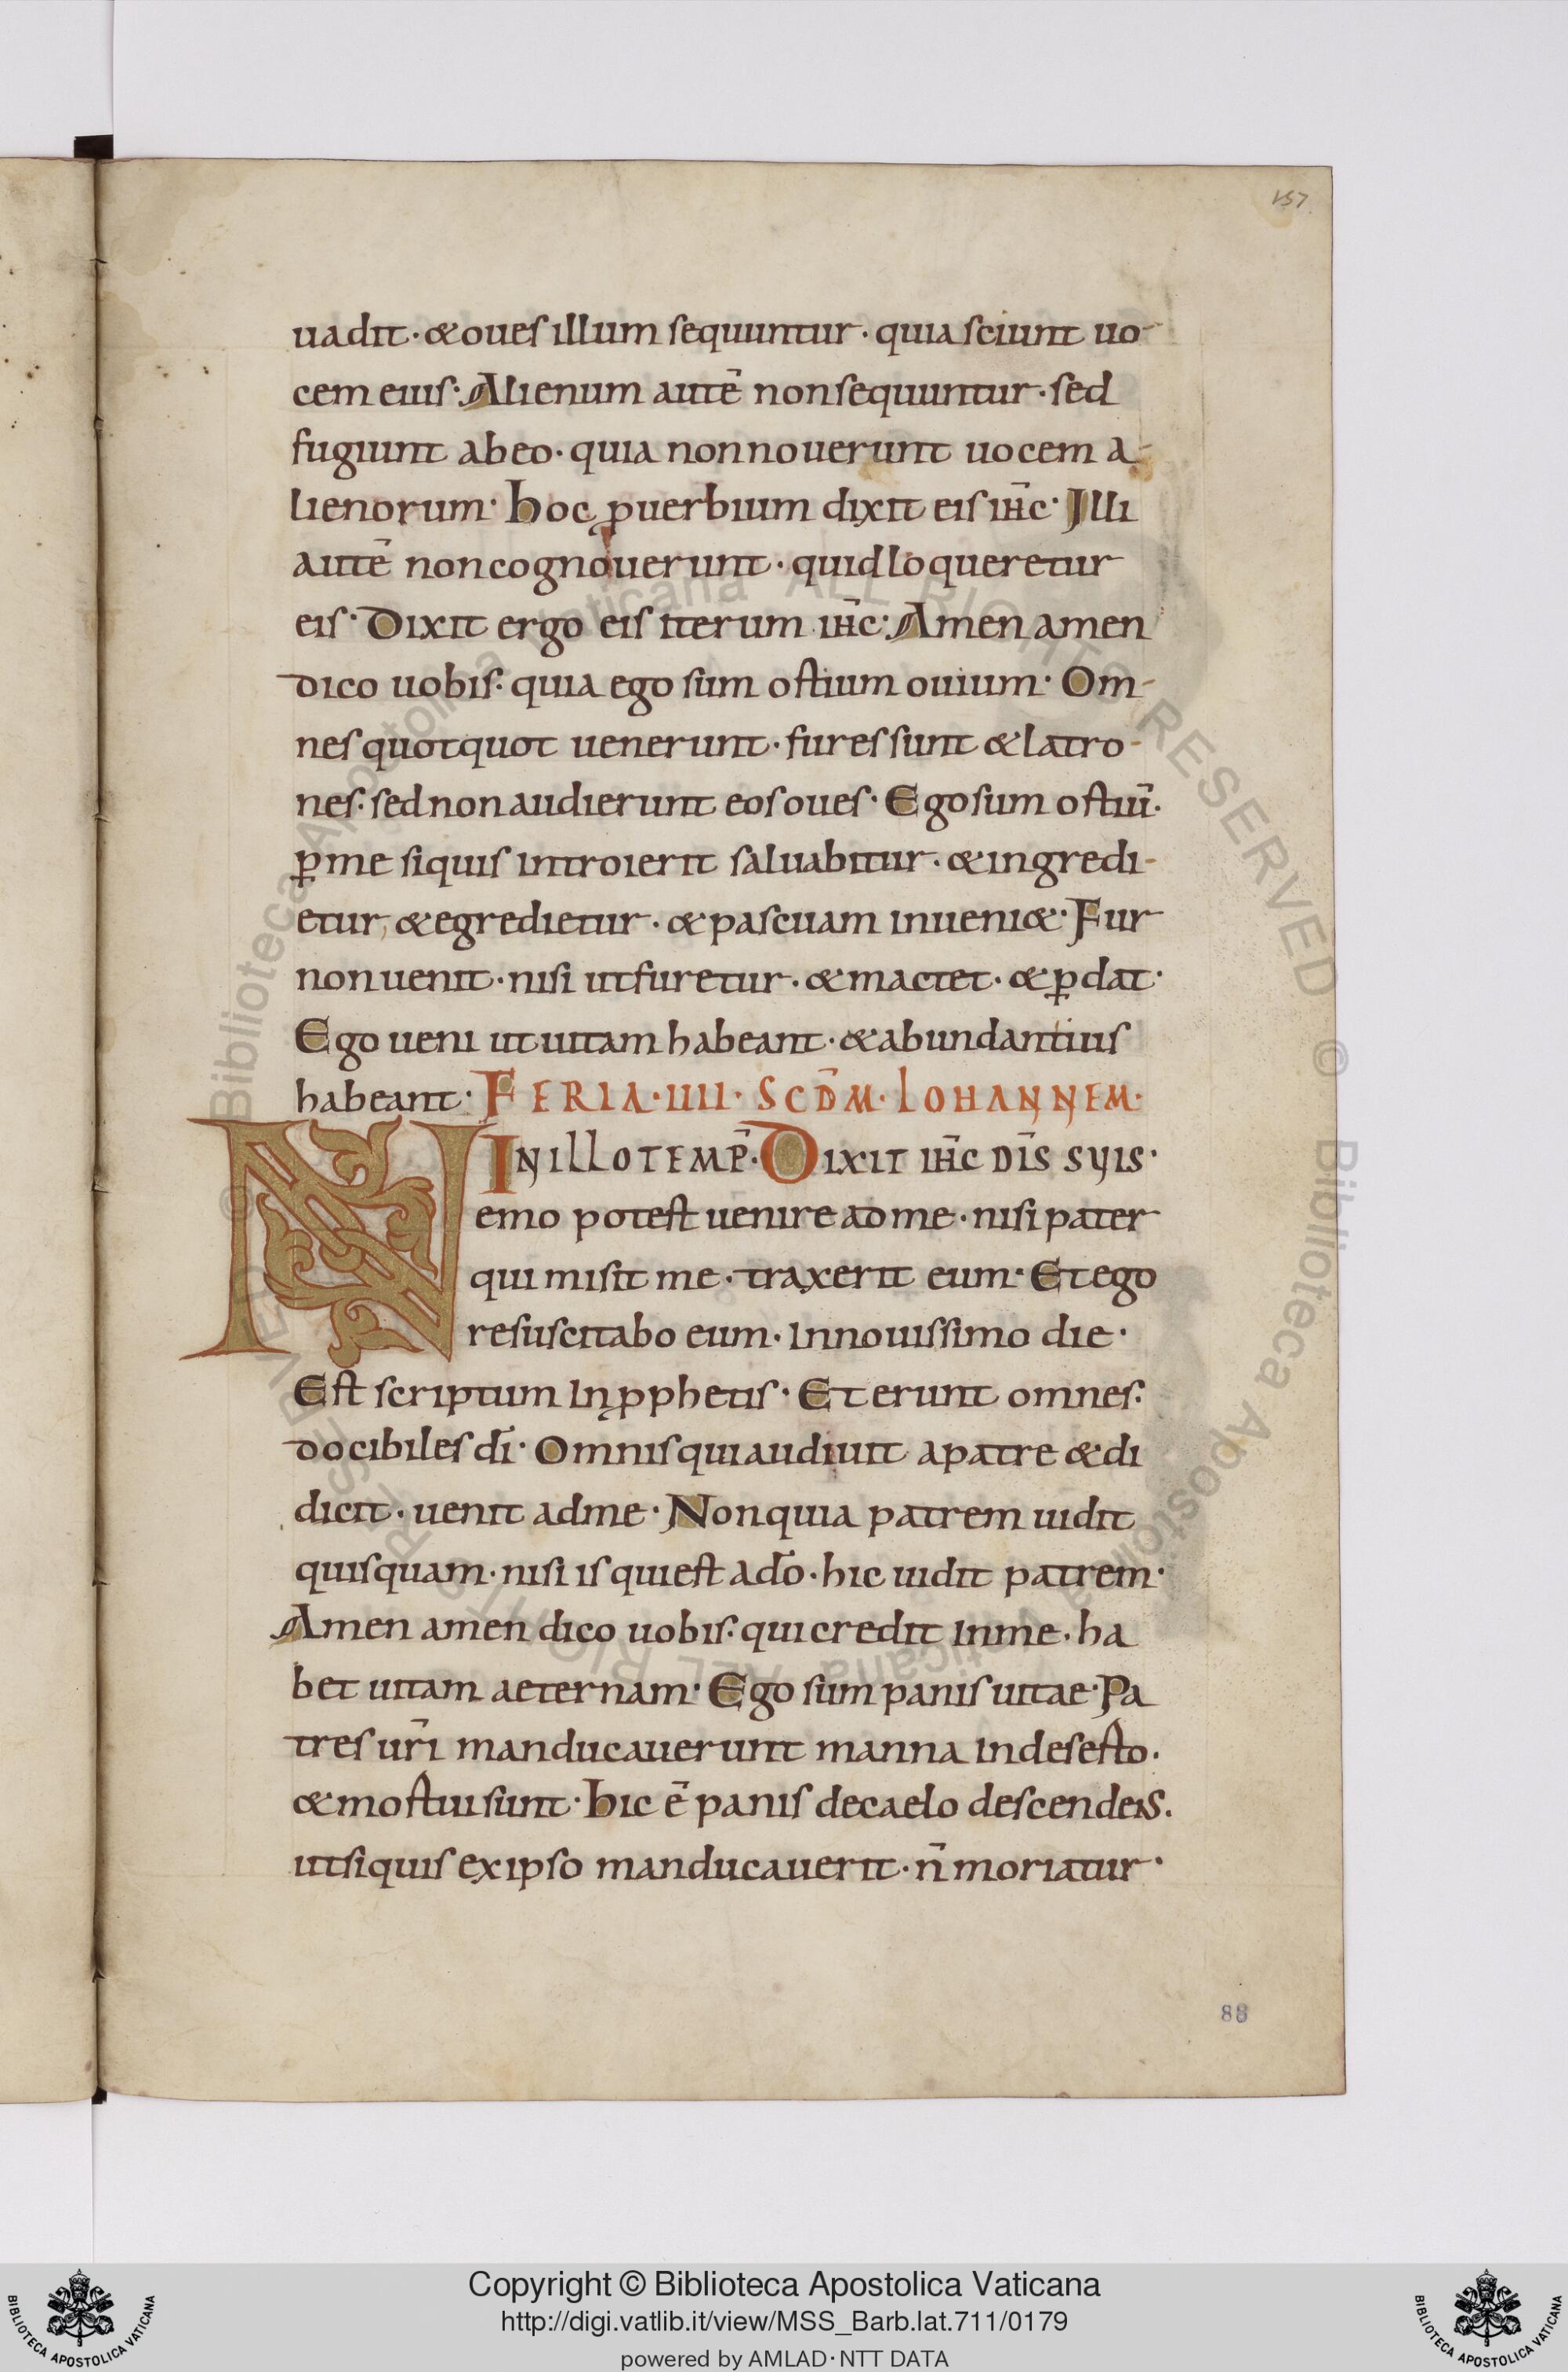 157
uadit· & oues illum sequuntur· quia sciunt uo-
cem eius· Alienum autē non sequuntur· sed
fugiunt ab eo· quia non nouerunt uocem a-
lienorum· hoc ꝓuerbium dixit eis ih̄c· Illi
autē non cognouerunt· quid loqueretur
eis· Dixit ergo eis iterum ih̄c· Amen amen
dico uobis· quia ego sum ostium ouium· Om-
nes quotquot uenerunt· fures sunt & latro-
nes· sed non audierunt eos oues· Ego sum ostiū·
ꝑ me siquis introierit saluabitur· & ingredi-
etur, & egredietur· & pascuam inueni&· Fur
non uenit· nisi ut furetur· & mactet· & ꝑdat·
Ego ueni ut uitam habeant· & abundantius
habeant· FERIA· IIII· SCD̄M· IOHANNEM·
IN ILLO TEMP̄· DIXIT IH̄C DIS̄ SUIS·
Nemo potest uenire ad me· nisi pater
qui misit me· traxerit eum· Et ego
resuscitabo eum· in nouissimo die·
Est scriptum in ꝓphetis· Et erunt omnes·
docibiles dī· Omnis qui audiuit a patre & di
dicit· uenit ad me· Non quia patrem uidit
quisquam· nisi is qui est a dō· hic uidit patrem·
Amen amen dico uobis· qui credit in me· ha
bet uitam aeternam· Ego sum panis uitae· Pa
tres ur̄i manducauerunt manna in deserto·
& mortui sunt· hic ē panis de caelo descendens·
ut siquis ex ipso manducauerit· n̄ moriatur·
88
© Biblioteca Apostolica Vaticana ALL RIGHTS RESERVED
© Biblioteca Apostolica Vaticana ALL RIGHTS RESERVED
Copyright © Biblioteca Apostolica Vaticana
http://digi.vatlib.it/view/MSS_Barb.lat.711/0179
powered by AMLAD·NTT DATA
BIBLIOTECA APOSTOLICA VATICANA
BIBLIOTECA APOSTOLICA VATICANA